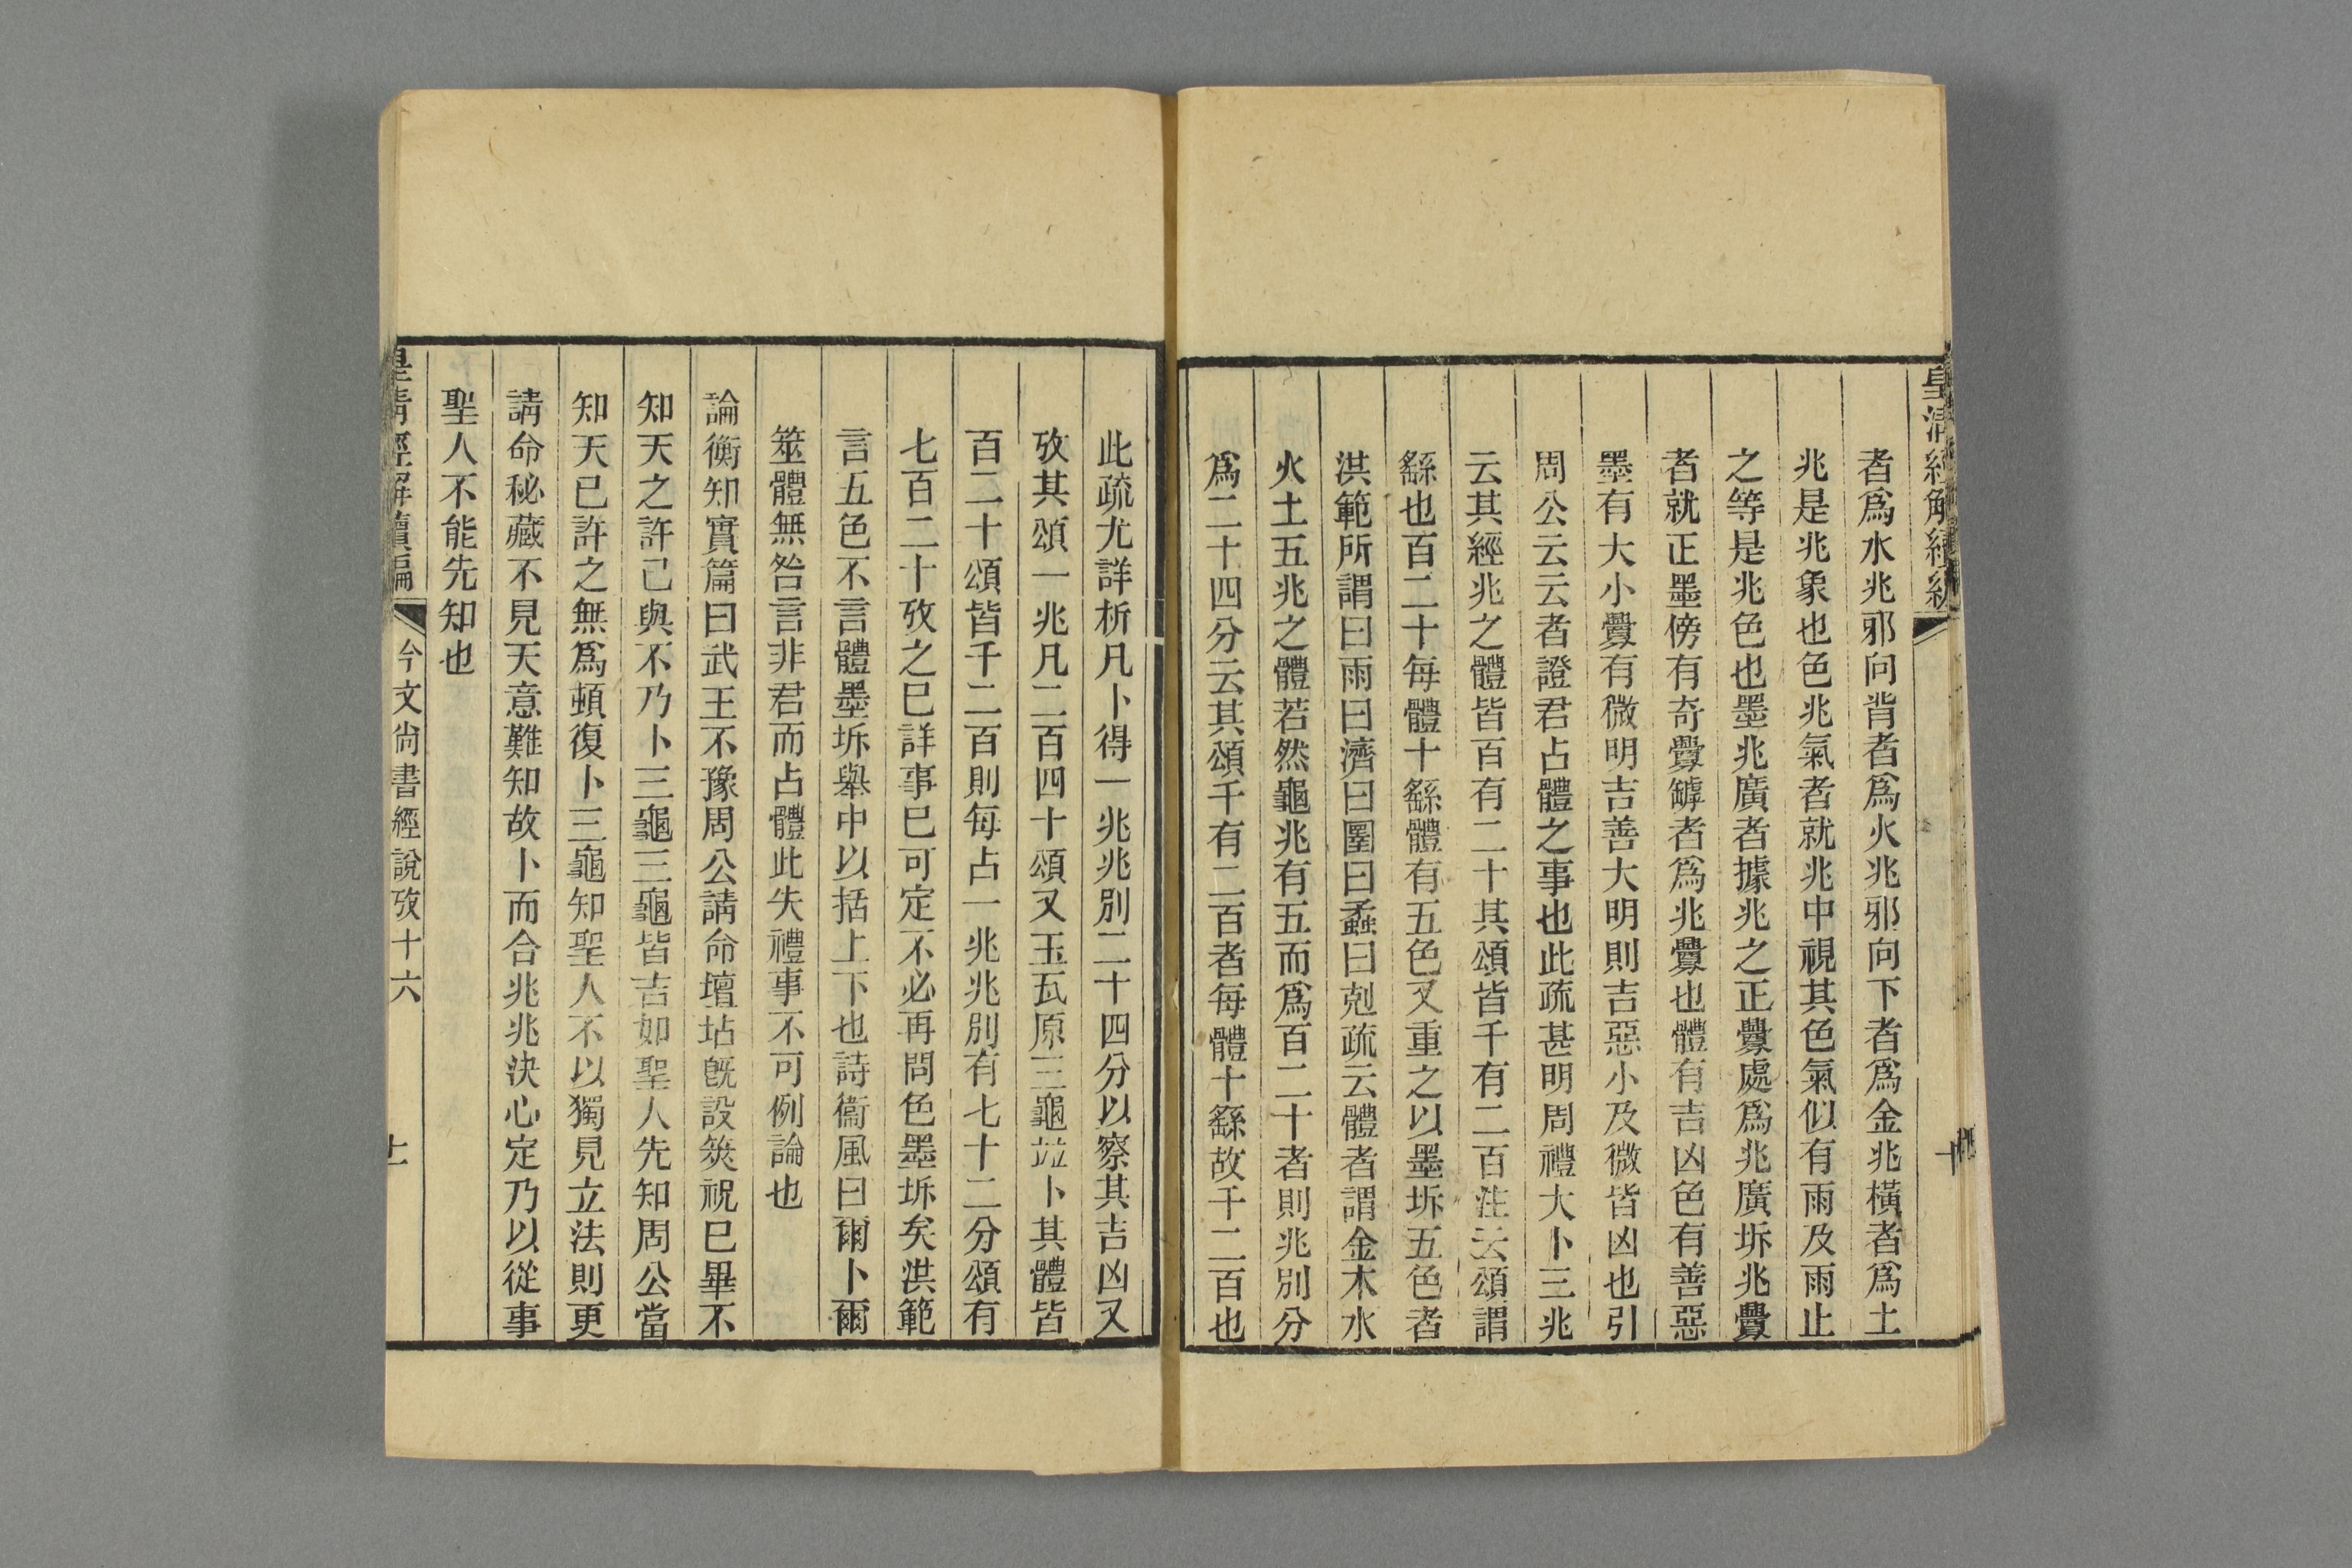 皇清經解續編
者爲水兆邪向背者爲火兆邪向下者爲金兆橫者爲土
兆是兆象也色兆氣者就兆中視其色氣似有雨及雨止
之等是兆色也墨兆廣者據兆之正釁處爲兆廣坼兆釁
者就正墨傍有奇釁罅者爲兆釁也體有吉凶色有善惡
墨有大小釁有微明吉善大明則吉惡小及微皆凶也引
周公云云者證君占體之事也此疏甚明周禮大卜三兆
云其經兆之體皆百有二十其頌皆千有二百注云頌謂
繇也百二十每體十繇體有五色又重之以墨坼五色者
洪範所謂曰雨曰濟曰圛曰蟊曰剋疏云體者謂金木水
火土五兆之體若然龜兆有五而爲百二十者則兆別分
爲二十四分云其頌千有二百者每體十繇故千二百也
此疏尤詳析凡卜得一兆兆別二十四分以察其吉凶又
攷其頌一兆凡二百四十頌又玉瓦原三龜竝卜其體皆
百二十頌皆千二百則每占一兆兆別有七十二分頌有
七百二十攷之已詳事已可定不必再問色墨坼矣洪範
言五色不言體墨坼舉中以括上下也詩衞風曰爾卜爾
筮體無咎言非君而占體此失禮事不可例論也
論衡知實篇曰武王不豫周公請命壇坫旣設筴祝已畢不
知天之許己與不乃卜三龜三龜皆吉如聖人先知周公當
知天已許之無爲頓復卜三龜知聖人不以獨見立法則更
請命秘藏不見天意難知故卜而合兆兆決心定乃以從事
聖人不能先知也
皇清經解續編
今文尙書經說攷十六
十